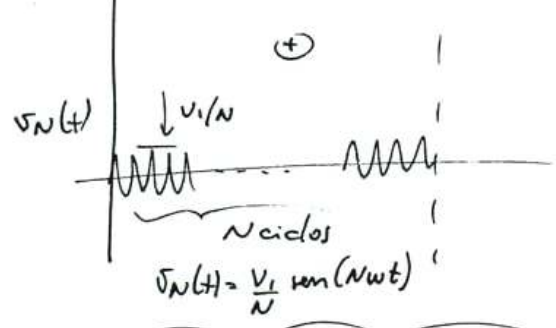 +
v_N(t)
V₁/N
N ciclos
v_N(t) = V₁/N sen(Nωt)